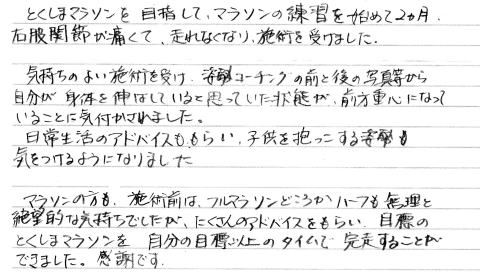 とくしまマラソンを目指して、マラソンの練習を始めて2ヵ月.
右股関節が痛くて、走れなくなり、施術を受けました.
気持ちのよい施術を受け、姿勢コーチングの前と後の写真等から
自分が身体を伸ばしていると思っていた状態が、前方重心になって
いることに気付かされました。
日常生活のアドバイスももらい、子供を抱っこする姿勢も
気をつけるようになりました
マラソンの方も、施術前は、フルマラソンどころかハーフも無理と
絶望的な気持ちでしたが、たくさんのアドバイスをもらい、目標の
とくしまマラソンを 自分の目標以上のタイムで 完走することが
できました。感謝です.